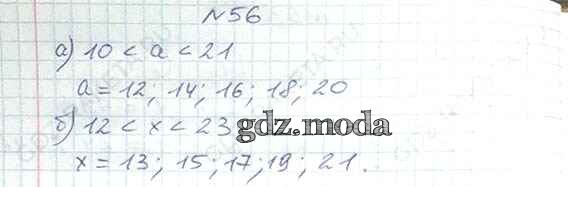 №56
а) 10 < а < 21
а = 12; 14; 16; 18; 20
б) 12 < х < 23
gdz.moda
х = 13; 15; 17; 19; 21.